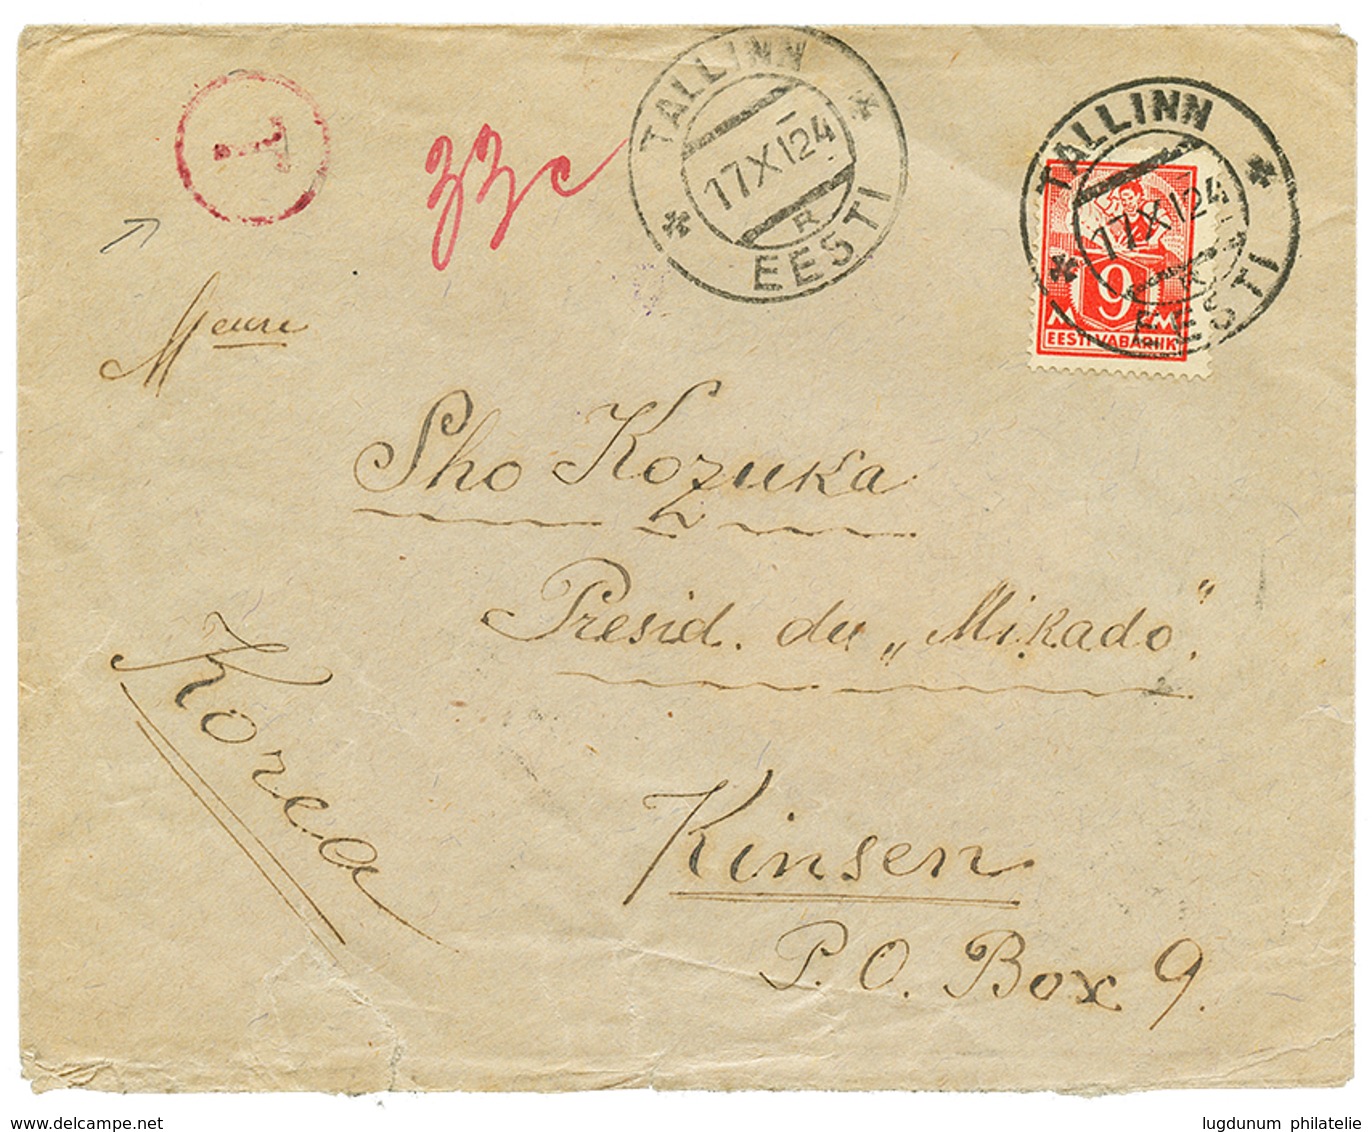 T
33c
TALLINN
17 XI 24
R
EESTI
TALLINN
17 XI 24
EESTI
9
M M
EESTI VABARIIK
Sho Kozuka
Presid. du „Mikado"
Korea
Kinsen
P. O. Box 9.
www.delcampe.net
lugdunum philatelie